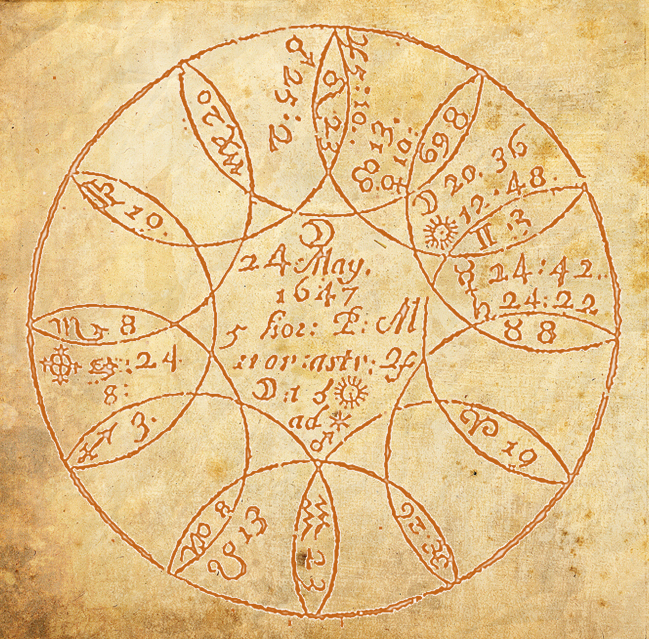 ♂ 25:2
♌ 23
5:10.
☊ 13.
♀ 10:
♋ 8
♍ 20
☽ 20. 36
☉ 12. 48.
♎ 10.
♊ 3
☽
24: May.
1647
☿ 24:42.
♄ 24:22
5 hor: P: M
♏ 8
♉ 8
astr: ♃
⊕ :24
8:
☉
ad ⚹
♂
♐ 3.
♈ 19
♑ 8
☋ 13
♒ 23
♓